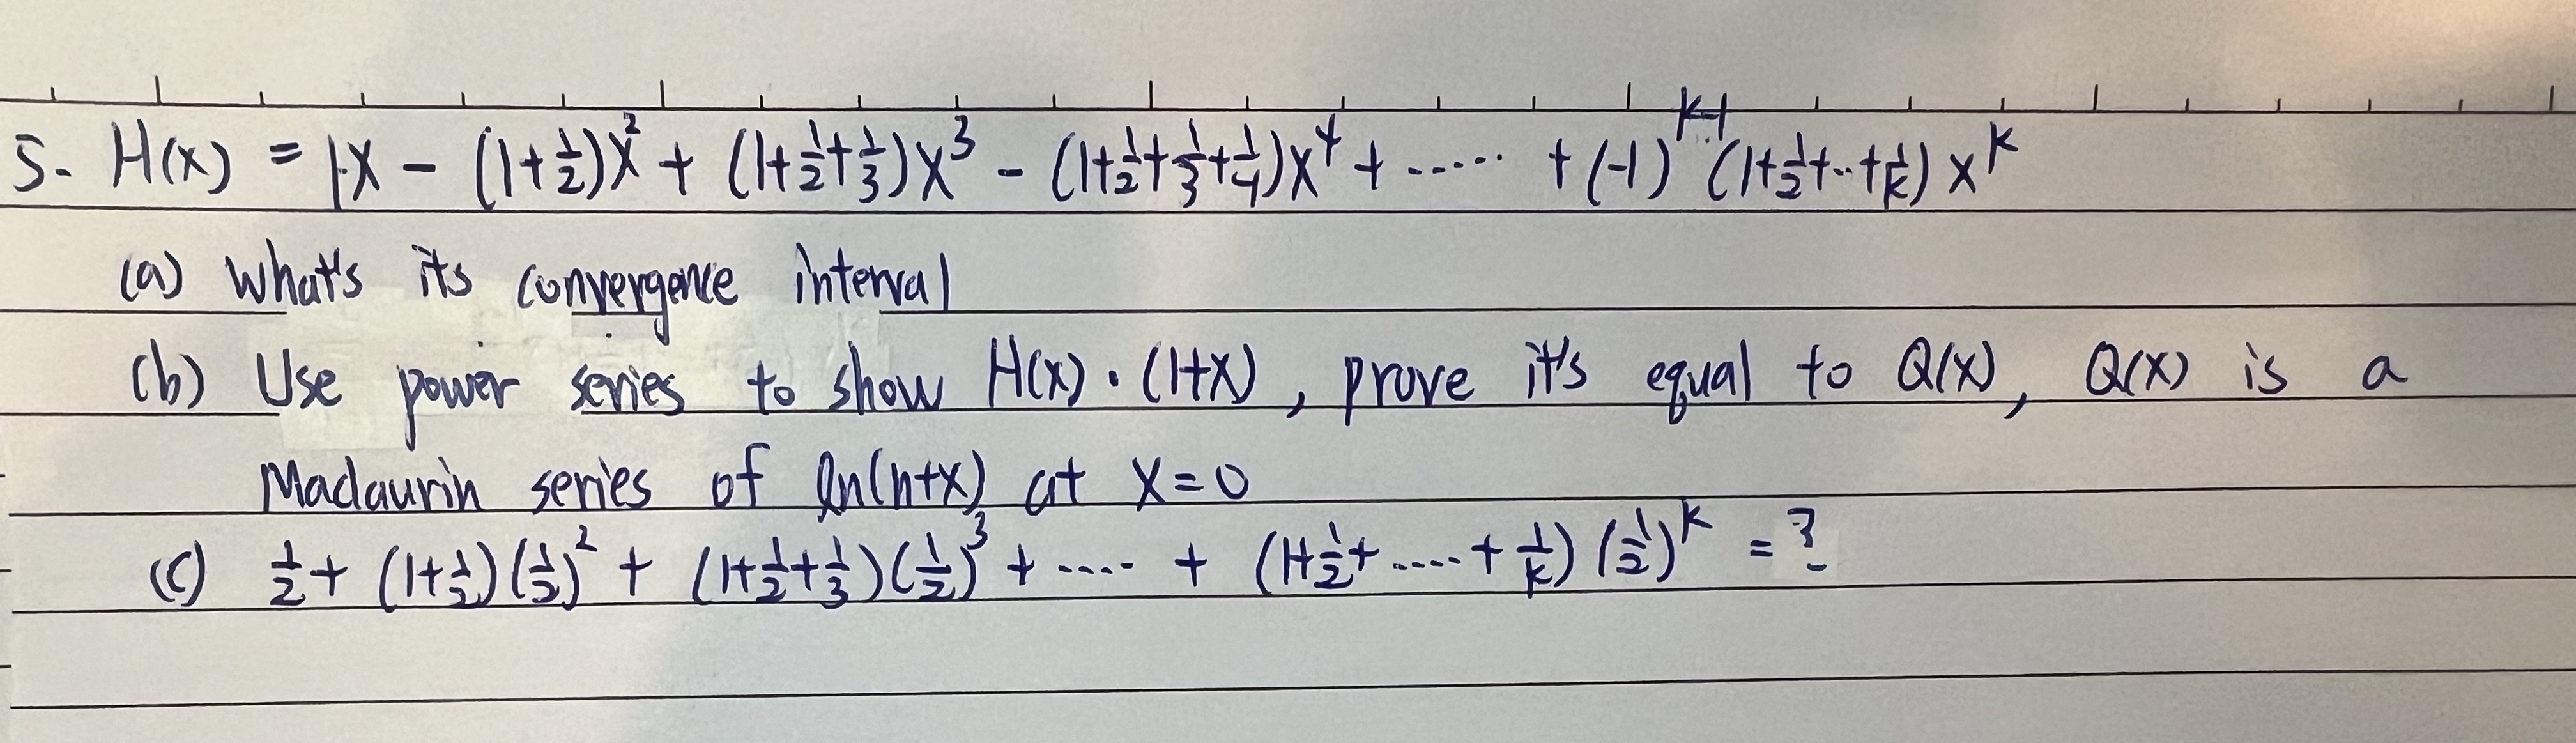 5. H(x) = 1·x - (1+1/2)x² + (1+1/2+1/3)x³ - (1+1/2+1/3+1/4)x⁴ + ...... + (-1)^(k-1) (1+1/2+..+1/k) x^k
(a) What's its convergence interval
(b) Use power series to show H(x) · (1+x), prove it's equal to Q(x), Q(x) is a
Maclaurin series of ln(n+x) at x=0
(c) 1/2 + (1+1/2)(1/2)² + (1+1/2+1/3)(1/2)³ + .... + (1+1/2+....+1/k) (1/2)^k = ?